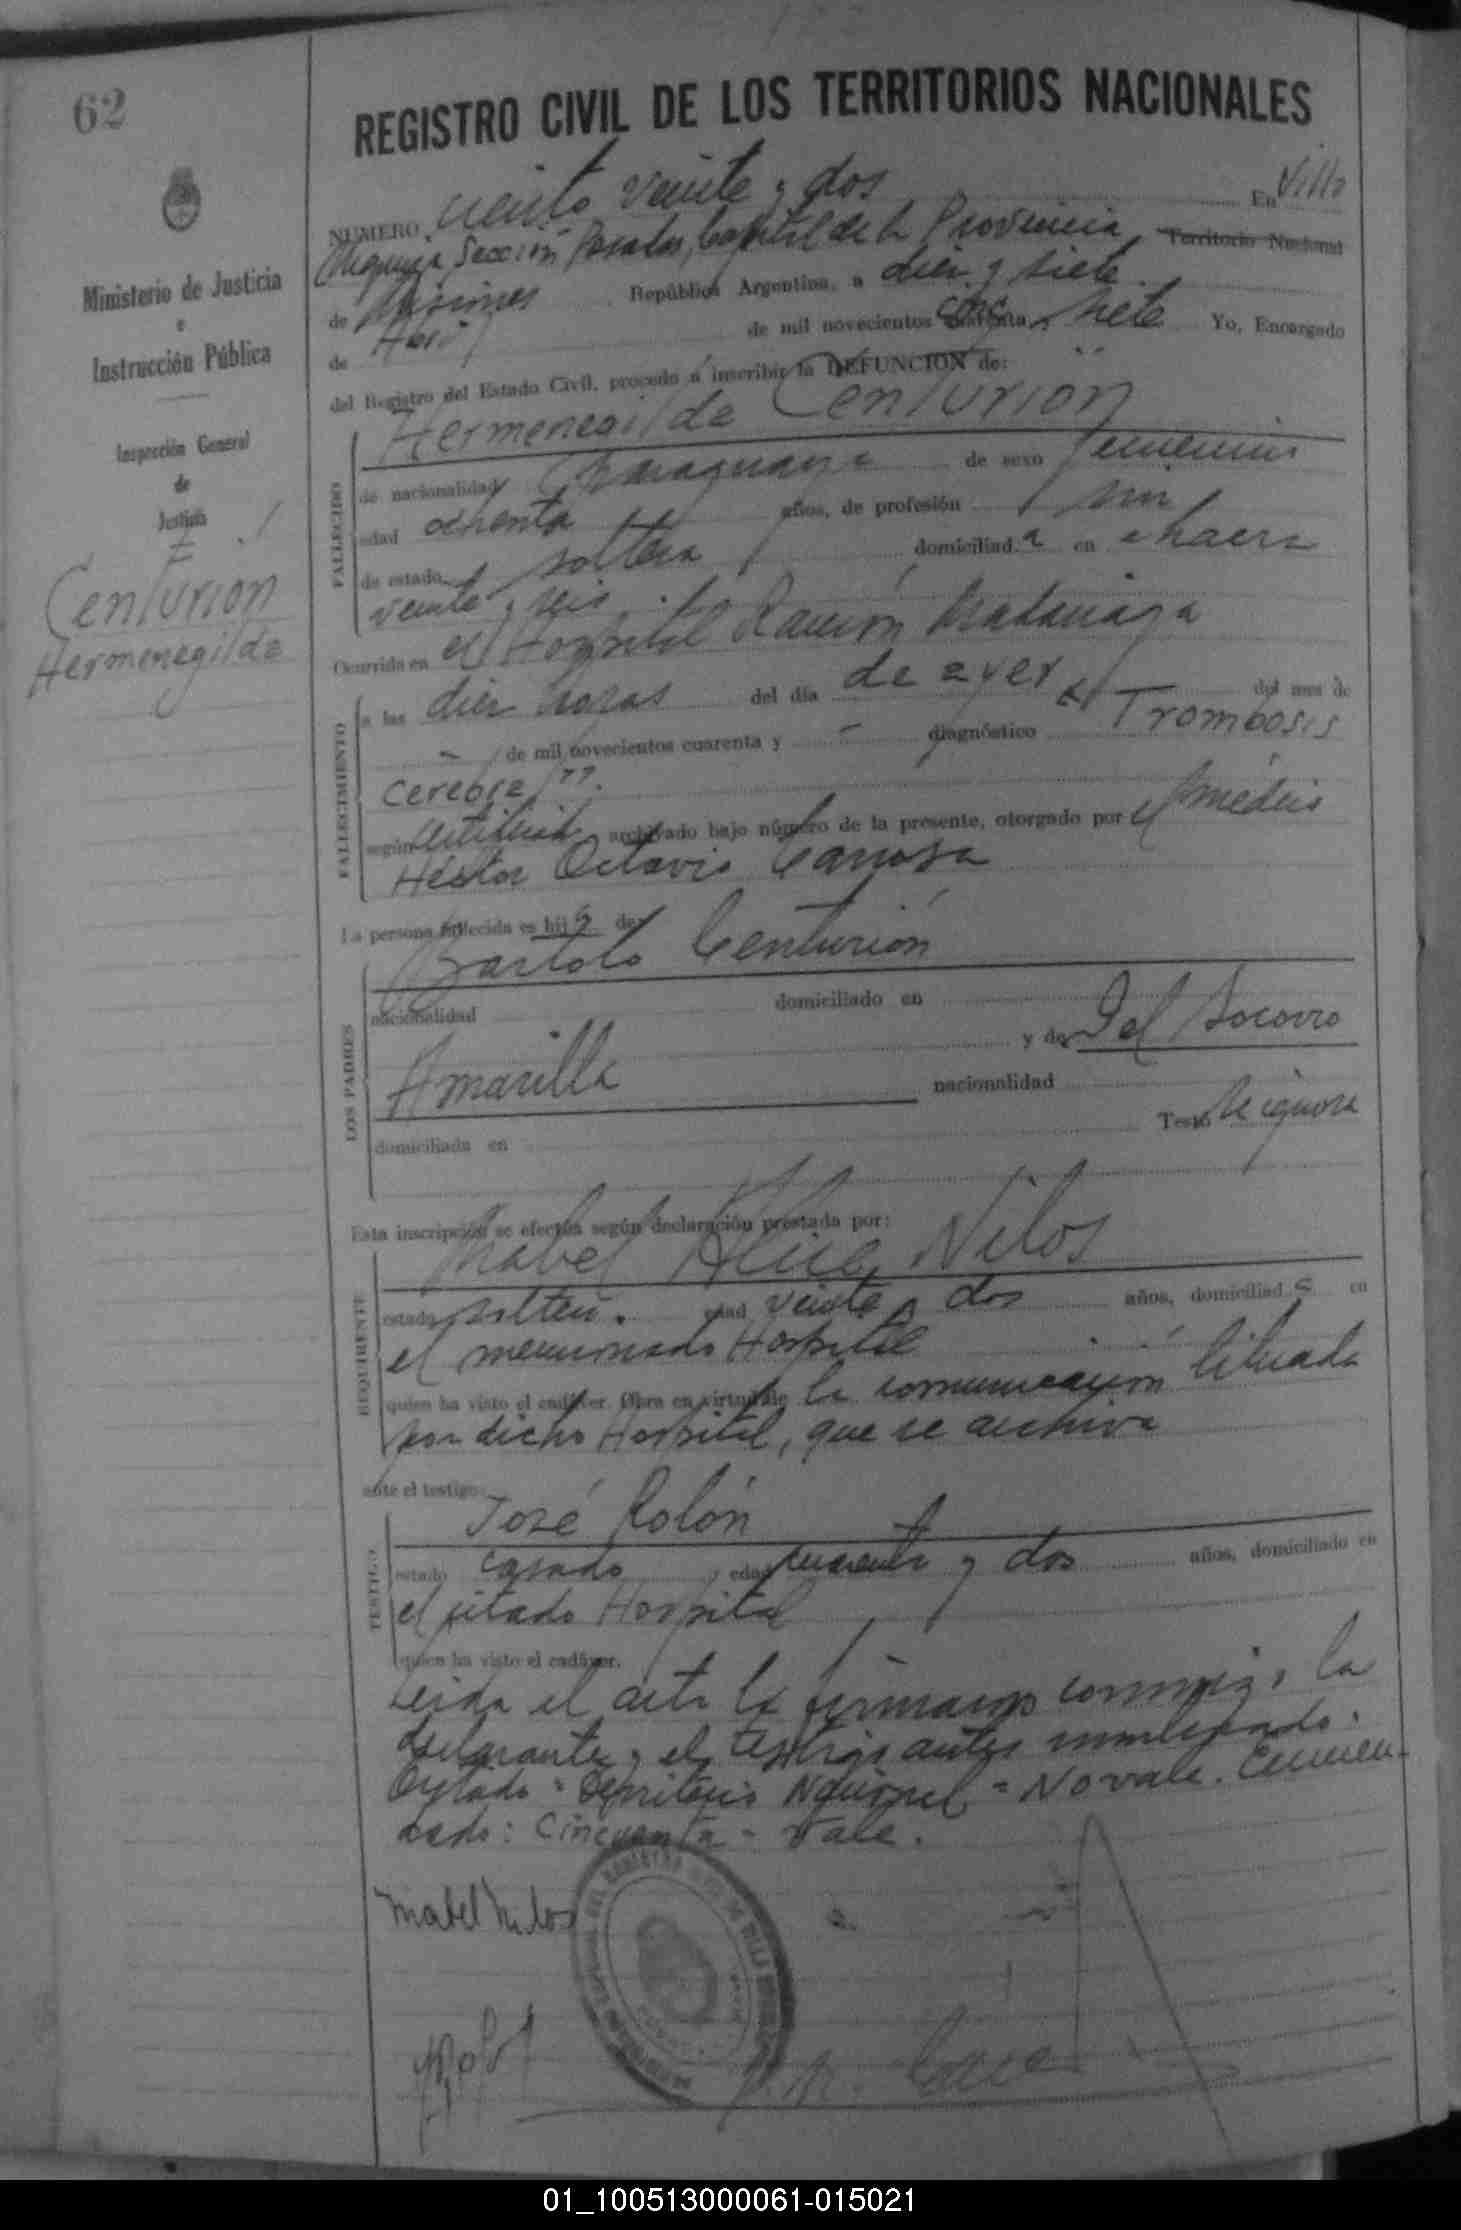 62
REGISTRO CIVIL DE LOS TERRITORIOS NACIONALES
Ministerio de Justicia
e
Instrucción Pública
Inspección General
de
Justicia
Centurión
Hermenegilda
NUMERO ciento veinte y dos En Villa
Sección Posadas, Capital de la Provincia, Territorio Nacional
de Misiones República Argentina, a diez y siete
de Abril de mil novecientos cuarenta y siete Yo, Encargado
del Registro del Estado Civil, procedo a inscribir la DEFUNCION de:
Hermenegilda Centurión
FALLECIDO
de nacionalidad Paraguaya de sexo femenino
edad ochenta años, de profesión sin
de estado soltera domiciliad a en chacra
veinte y seis.
Ocurrida en el Hospital Ramón Madariaga
FALLECIMIENTO
a las diez horas del día de ayer del mes de
- de mil novecientos cuarenta y - diagnóstico "Trombosis
cerebral".
según certificado archivado bajo número de la presente, otorgado por el médico
Héctor Octavio
La persona fallecida es hij a de
LOS PADRES
Bartolo Centurión
nacionalidad domiciliado en
y de Del Socorro
Amarilla nacionalidad
domiciliada en Testó se ignora
Esta inscripción se efectúa según declaración prestada por:
REQUIRENTE
Mabel Alicia Nilos
estado soltera. edad veinte y dos años, domiciliad a en
el mencionado Hospital
quien ha visto el cadáver. Obra en virtud de la comunicación librada
por dicho Hospital, que se archiva
ante el testigo:
TESTIGO
José Rolón
estado casado y edad cuarenta y dos años, domiciliado en
el citado Hospital
quien ha visto el cadáver.
Leida el acta la firmaron conmigo, la
declarante y el testigo antes nombrado.
Testado = Territorio Nacional = No vale. Enmen-
dado: Cincuenta - vale.
Mabel Nilos
01_100513000061-015021